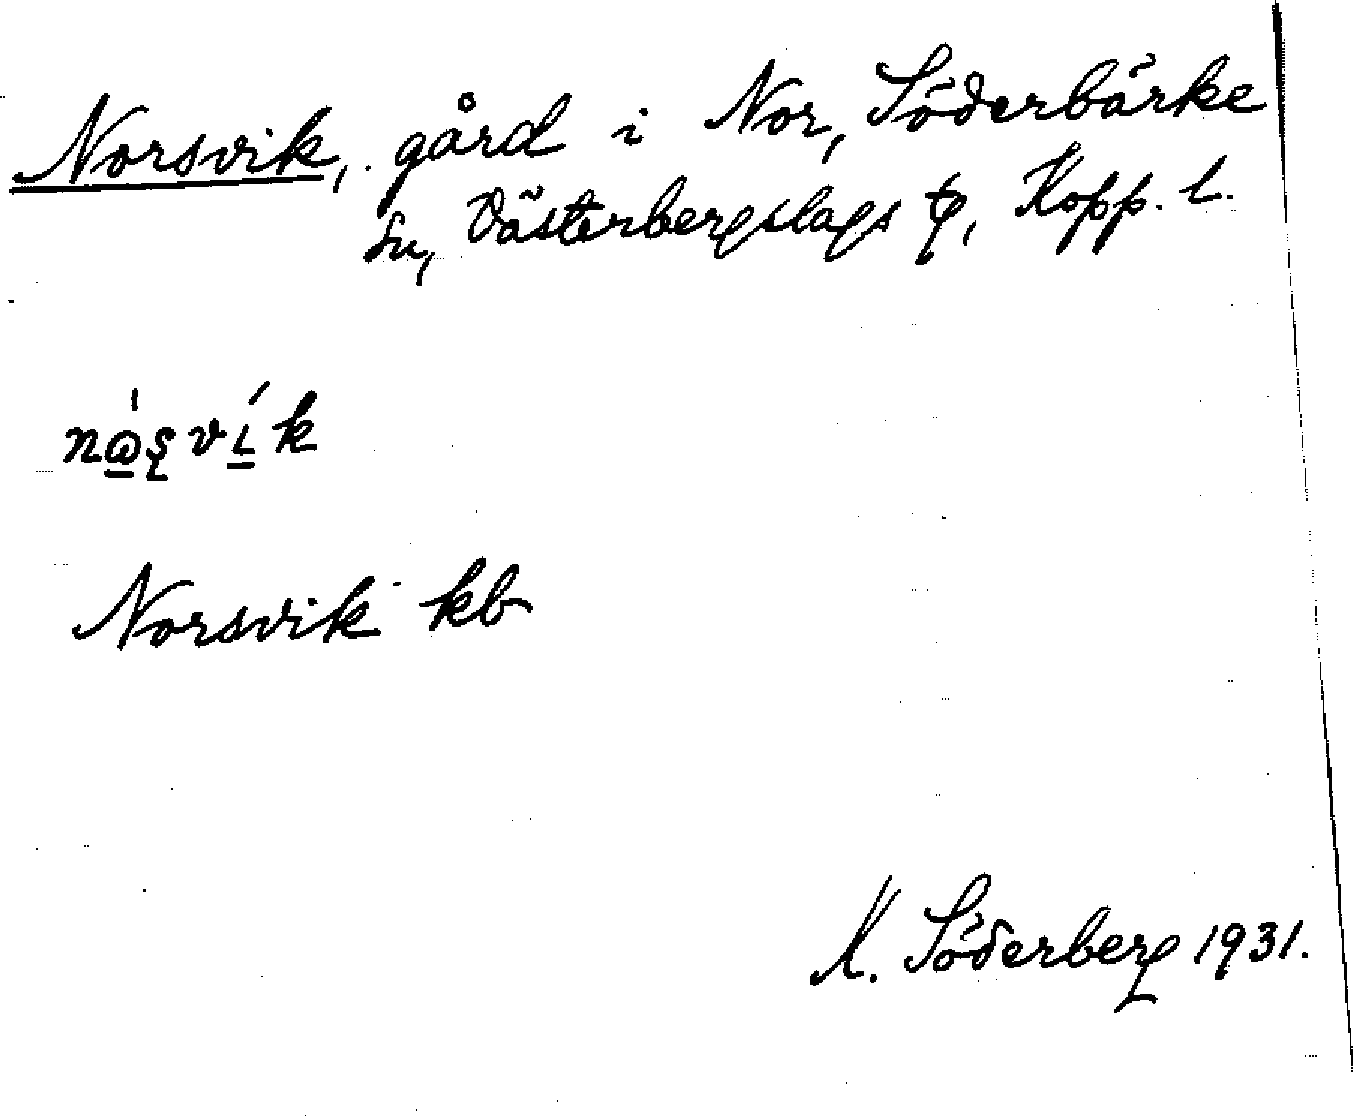 Norsvik, gård i Nor, Söderbärke
sn, Västerbergslags tg, Kopp. l.
Norsvik kb
K. Söderberg 1931.